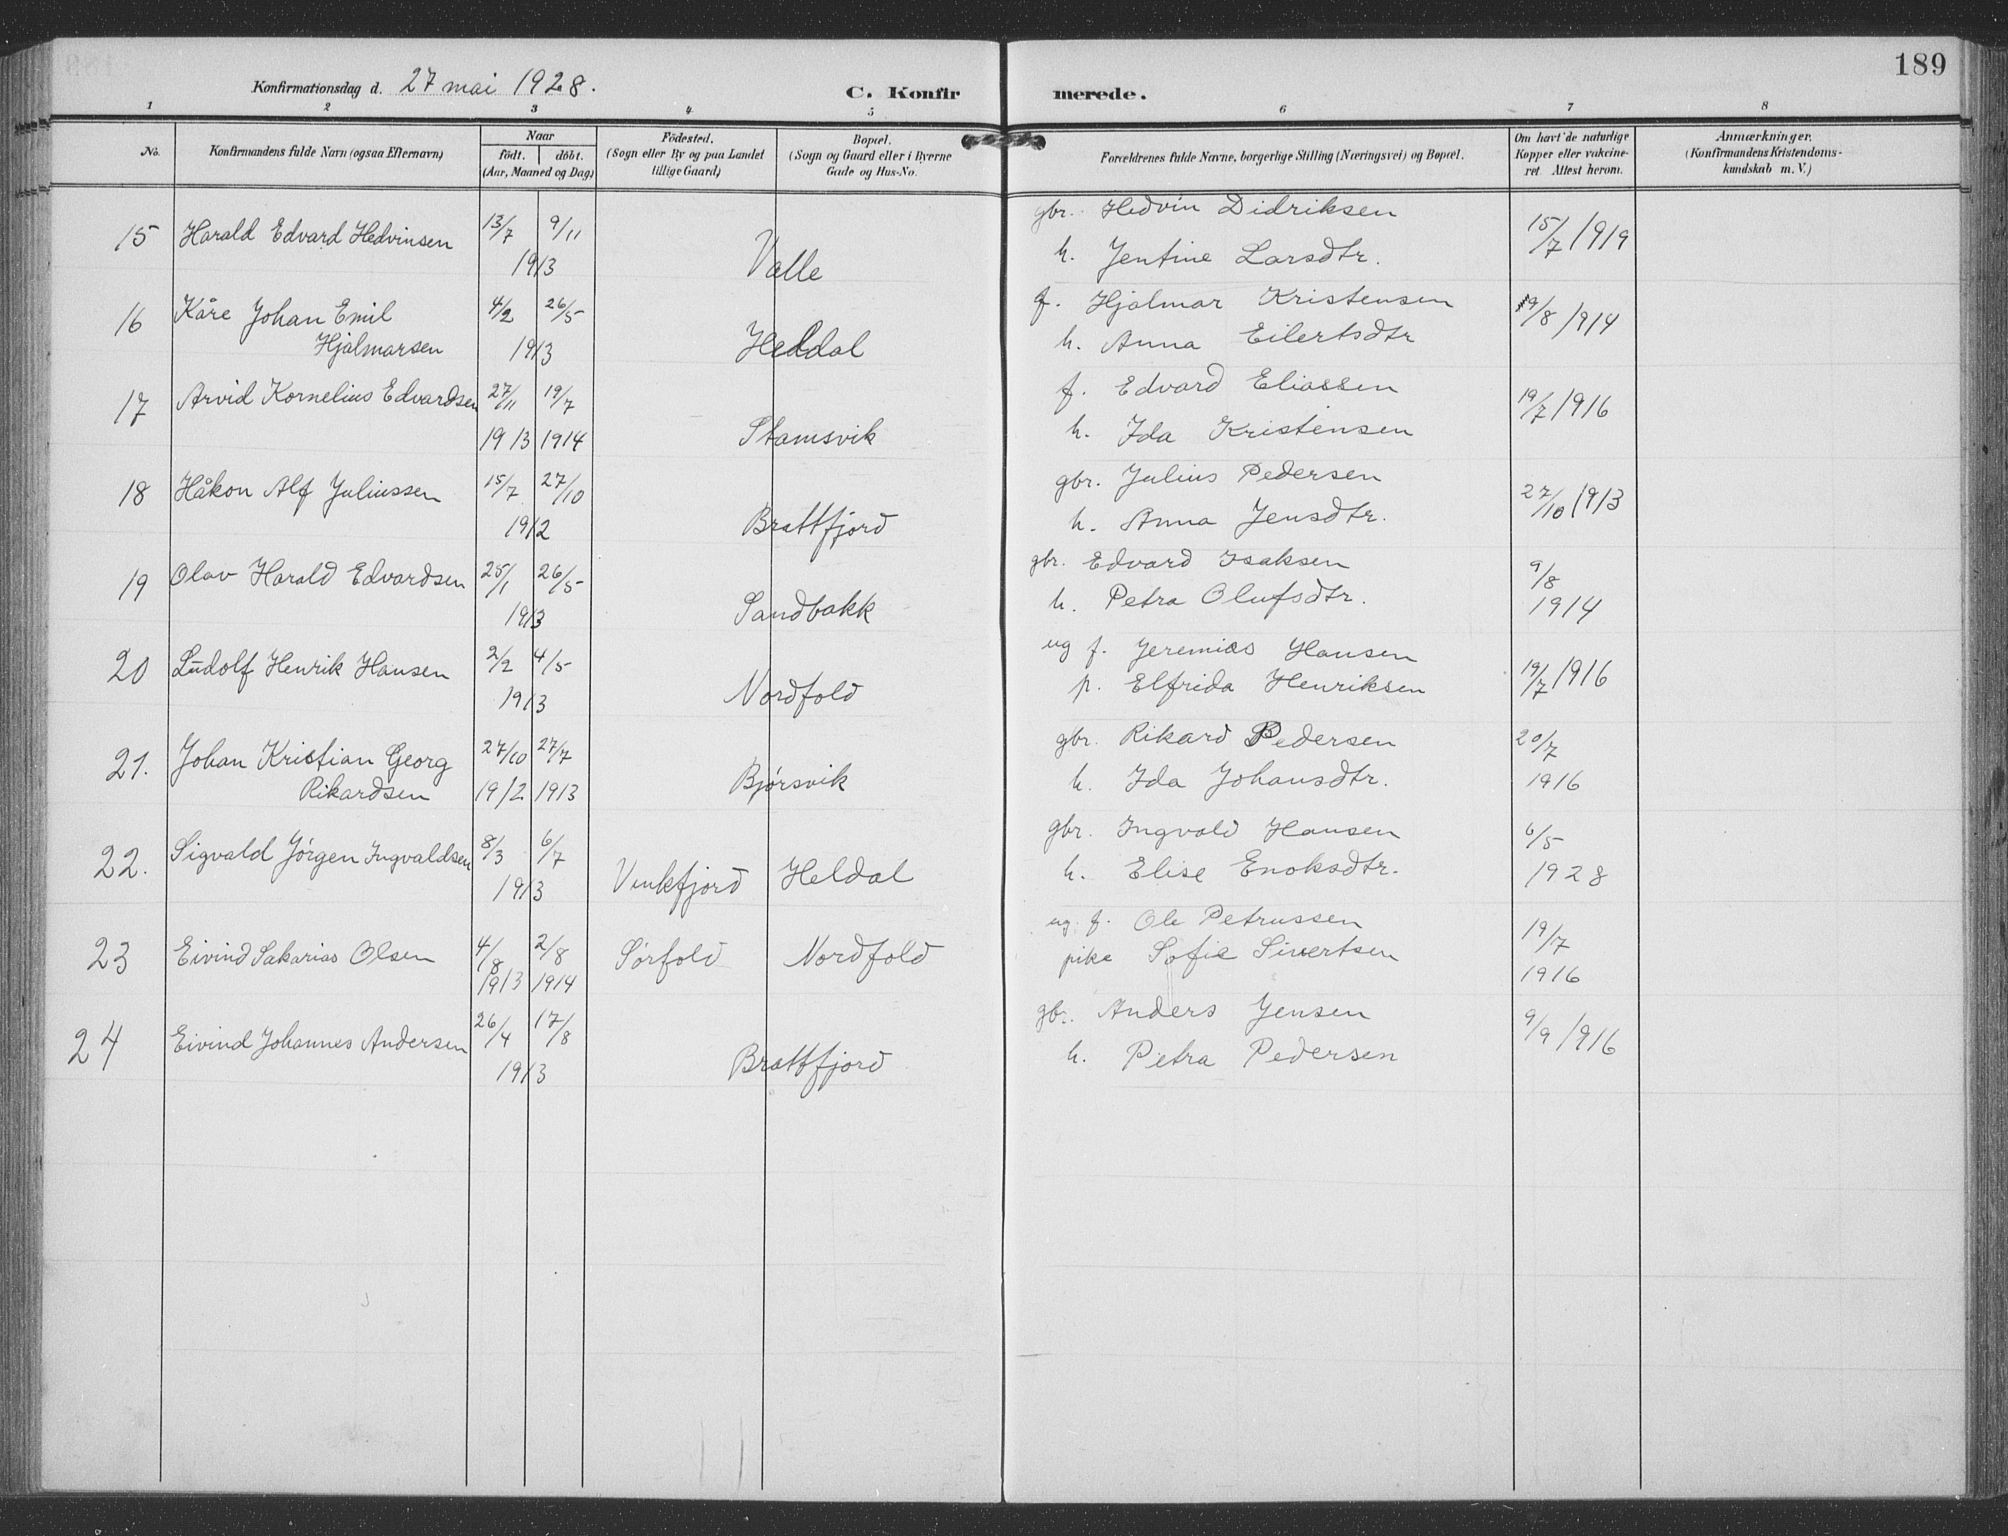 189
Konfirmationsdag d. 27 mai 1928. C. Konfirmerede.
1 2 3 4 5 6 7 8
No. Konfirmandens fulde Navn (ogsaa Efternavn) Naar födt. döbt. (Aar, Maaned og Dag) Födested. (Sogn eller By og paa Landet tillige Gaard) Bopæl. (Sogn og Gaard eller i Byerne Gade og Hus-No. Forældrenes fulde Navne, borgerlige Stilling (Næringsvei) og Bopæl. Om havt de naturlige Kopper eller vakcineret. Attest herom. Anmærkninger. (Konfirmandens Kristendomskundskab m. V.)
15 Harald Edvard Hedvinsen 13/7 9/11 gbr. Hedvin Didriksen 15/7 1919
1913 Valle h. Jentine Larsdtr.
16 Kåre Johan Emil 4/2 26/5 f. Hjalmar Kristensen 19/8 1914
Hjalmarsen 1913 Heldal h. Anna Eilertsdtr
17 Arvid Kornelius Edvardsen 27/11 19/7 f. Edvard Eliassen 19/7 1916
1913 1914 Stamsvik h. Ida Kristensen
18 Håkon Alf Juliussen 15/7 27/10 gbr. Julius Pedersen 27/10 1913
1912 Brattfjord h. Anna Jensdtr.
19 Olav Harald Edvardsen 25/1 26/5 gbr. Edvard Isaksen 9/8
1913 Sandbakk h. Petra Olufsdtr. 1914
20 Ludolf Henrik Hansen 2/2 4/5 ug f. Jeremias Hansen 19/7 1916
1913 Nordfold p. Elfrida Henriksen
21. Johan Kristian Georg 27/10 27/7 gbr. Rikard Pedersen 20/7
Rikardsen 1912 1913 Bjørsvik h. Ida Johansdtr. 1916
22. Sigvald Jørgen Ingvaldsen 8/3 6/7 gbr. Ingvald Hansen 6/5
1913 Vinkfjord Heldal h. Elise Enoksdtr. 1928
23 Eivind Sakarias Olsen 4/8 2/8 Sørfold Nordfold ug. f. Ole Petrussen 19/7
1913 1914 pike Sofie Sivertsen 1916
24 Eivind Johannes Andersen 26/4 17/8 gbr. Anders Jensen 9/9 1916
1913 Brattfjord h. Petra Pedersen